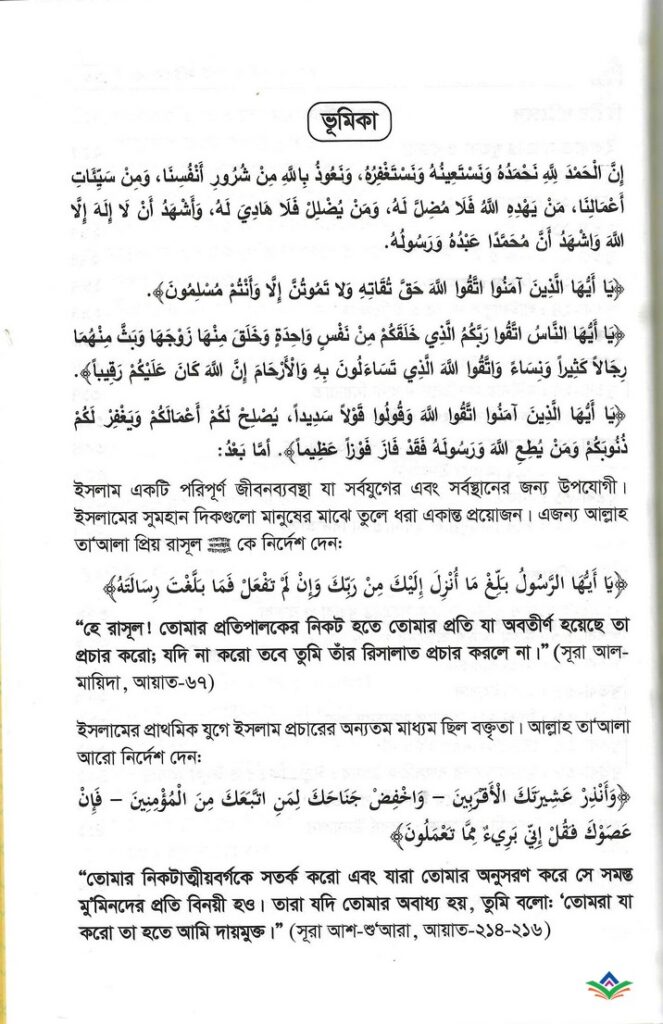 ভূমিকা
إِنَّ الْحَمْدَ لِلَّهِ نَحْمَدُهُ وَنَسْتَعِينُهُ وَنَسْتَغْفِرُهُ، وَنَعُوذُ بِاللَّهِ مِنْ شُرُورِ أَنْفُسِنَا، وَمِنْ سَيِّئَاتِ
أَعْمَالِنَا، مَنْ يَهْدِهِ اللَّهُ فَلَا مُضِلَّ لَهُ، وَمَنْ يُضْلِلْ فَلَا هَادِيَ لَهُ، وَأَشْهَدُ أَنْ لَا إِلَهَ إِلَّا
اللَّهَ وَاشْهَدُ أَنَّ مُحَمَّدًا عَبْدُهُ وَرَسُولُهُ.
﴿يَا أَيُّهَا الَّذِينَ آمَنُوا اتَّقُوا اللَّهَ حَقَّ تُقَاتِهِ وَلَا تَمُوتُنَّ إِلَّا وَأَنْتُمْ مُسْلِمُونَ﴾.
﴿يَا أَيُّهَا النَّاسُ اتَّقُوا رَبَّكُمُ الَّذِي خَلَقَكُمْ مِنْ نَفْسٍ وَاحِدَةٍ وَخَلَقَ مِنْهَا زَوْجَهَا وَبَثَّ مِنْهُمَا
رِجَالاً كَثِيراً وَنِسَاءً وَاتَّقُوا اللَّهَ الَّذِي تَسَاءَلُونَ بِهِ وَالْأَرْحَامَ إِنَّ اللَّهَ كَانَ عَلَيْكُمْ رَقِيباً﴾.
﴿يَا أَيُّهَا الَّذِينَ آمَنُوا اتَّقُوا اللَّهَ وَقُولُوا قَوْلاً سَدِيداً، يُصْلِحْ لَكُمْ أَعْمَالَكُمْ وَيَغْفِرْ لَكُمْ
ذُنُوبَكُمْ وَمَنْ يُطِعِ اللَّهَ وَرَسُولَهُ فَقَدْ فَازَ فَوْزاً عَظِيماً﴾. أَمَّا بَعْدُ:
ইসলাম একটি পরিপূর্ণ জীবনব্যবস্থা যা সর্বযুগের এবং সর্বস্থানের জন্য উপযোগী।
ইসলামের সুমহান দিকগুলো মানুষের মাঝে তুলে ধরা একান্ত প্রয়োজন। এজন্য আল্লাহ
তা'আলা প্রিয় রাসূল ﷺ কে নির্দেশ দেন:
﴿يَا أَيُّهَا الرَّسُولُ بَلِّغْ مَا أُنْزِلَ إِلَيْكَ مِنْ رَبِّكَ وَإِنْ لَمْ تَفْعَلْ فَمَا بَلَّغْتَ رِسَالَتَهُ﴾
“হে রাসূল! তোমার প্রতিপালকের নিকট হতে তোমার প্রতি যা অবতীর্ণ হয়েছে তা
প্রচার করো; যদি না করো তবে তুমি তাঁর রিসালাত প্রচার করলে না।” (সূরা আল-
মায়িদা, আয়াত-৬৭)
ইসলামের প্রাথমিক যুগে ইসলাম প্রচারের অন্যতম মাধ্যম ছিল বক্তৃতা। আল্লাহ তা'আলা
আরো নির্দেশ দেন:
﴿وَأَنْذِرْ عَشِيرَتَكَ الْأَقْرَبِينَ - وَاخْفِضْ جَنَاحَكَ لِمَنِ اتَّبَعَكَ مِنَ الْمُؤْمِنِينَ - فَإِنْ
عَصَوْكَ فَقُلْ إِنِّي بَرِيءٌ مِمَّا تَعْمَلُونَ﴾
“তোমার নিকটাত্মীয়বর্গকে সতর্ক করো এবং যারা তোমার অনুসরণ করে সে সমস্ত
মু'মিনদের প্রতি বিনয়ী হও। তারা যদি তোমার অবাধ্য হয়, তুমি বলো: ‘তোমরা যা
করো তা হতে আমি দায়মুক্ত।” (সূরা আশ-শু'আরা, আয়াত-২১৪-২১৬)